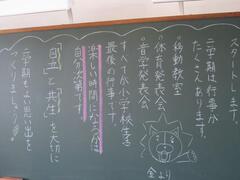 スタートします。
二学期は行事が
たくさんあります。
・移動教室
・体育発表会
・音学発表会
すべてが小学校生活
最後の行事です。
楽しい時間になるかは
自分次第です。
「自立」と「共生」を大切に
二学期もよい思い出を
つくりましょう!
金より